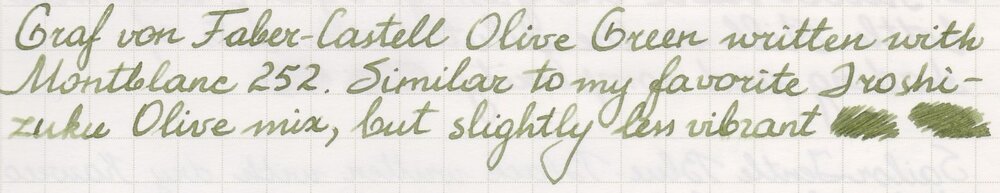 Graf von Faber-Castell Olive Green written with
Montblanc 252. Similar to my favorite Iroshi-
zuku Olive mix, but slightly less vibrant